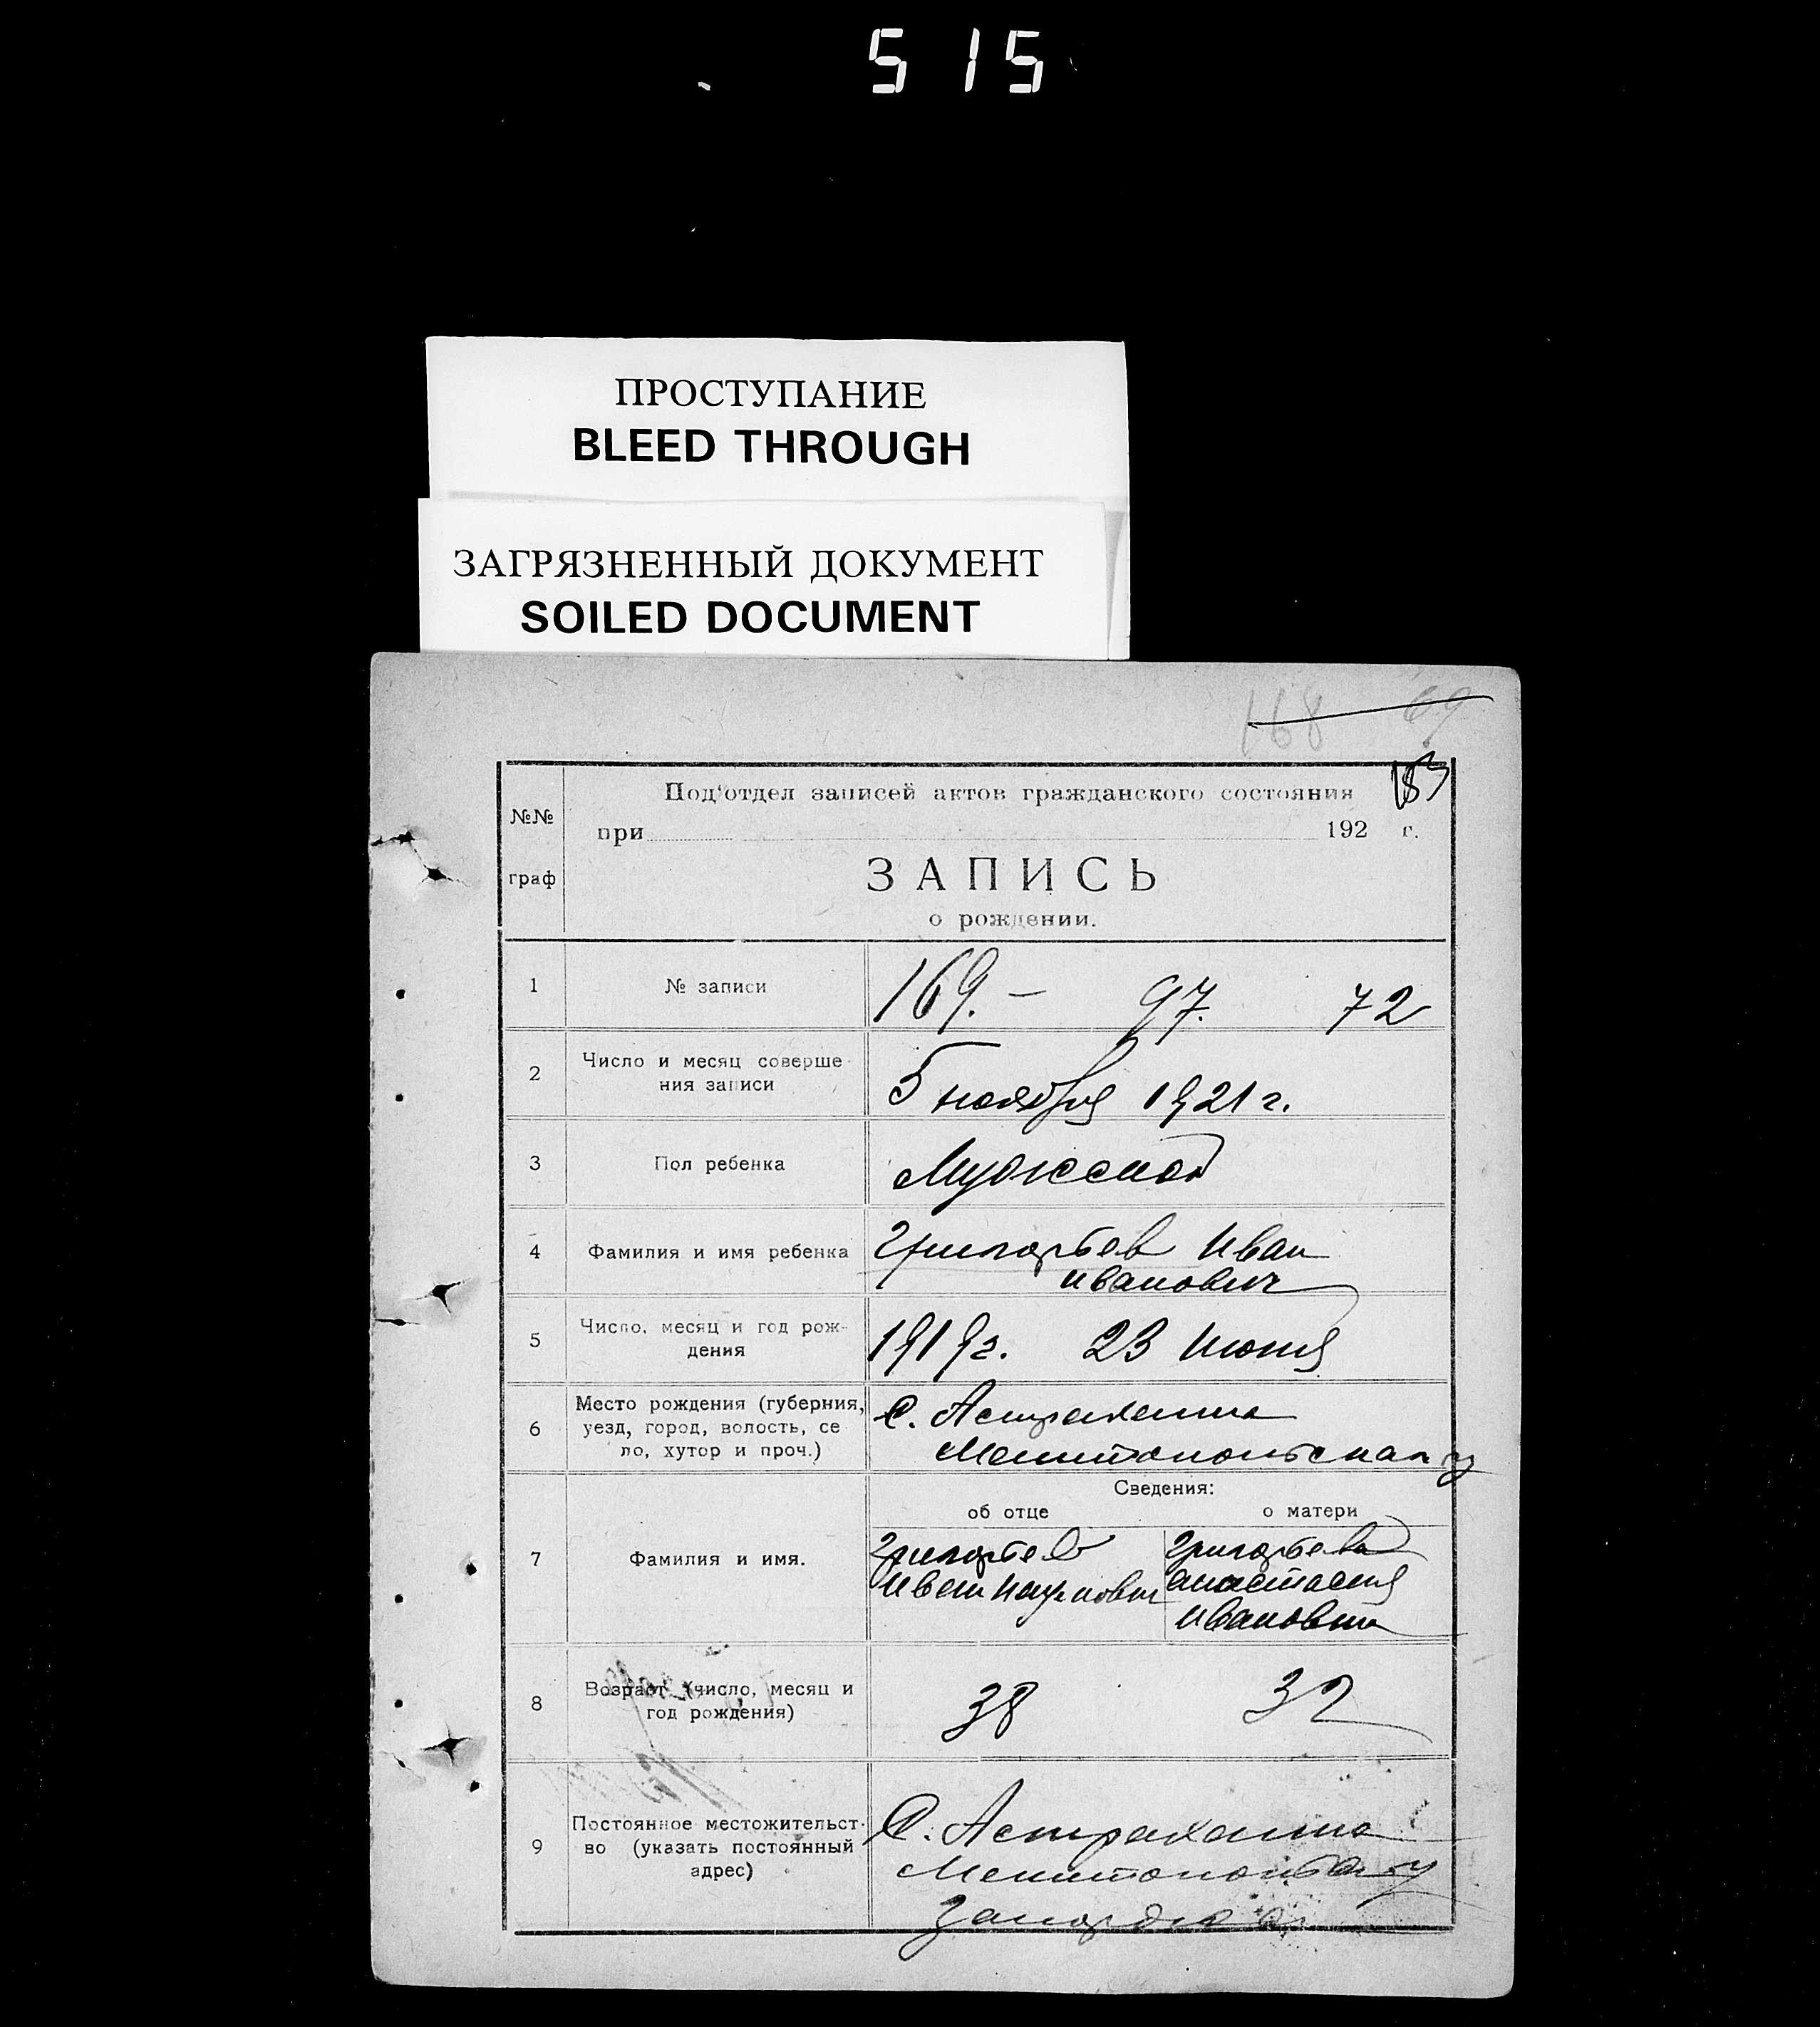 515
ПРОСТУПАНИЕ
BLEED THROUGH
ЗАГРЯЗНЕННЫЙ ДОКУМЕНТ
SOILED DOCUMENT
168 69
183
№№ граф
Под'отдел записей актов гражданского состояния
при 192 г.
ЗАПИСЬ
о рождении.
1 № записи 169.— 97. 72
2 Число и месяц соверше-
ния записи
5 ноября 1921 г.
3 Пол ребенка Мужской
4 Фамилия и имя ребенка Григорьев Иван
Иванович
5 Число, месяц и год рож-
дения
1919 г. 23 Июня
6 Место рождения (губерния,
уезд, город, волость, се
ло, хутор и проч.)
С. Астраханка
Мелитопольская у
Сведения:
об отце о матери
7 Фамилия и имя.
Григорьев
Иван Наумович
Григорьева
Анастасия
Ивановна
8 Возраст (число, месяц и
год рождения)
38 32
9 Постоянное местожительст-
во (указать постоянный
адрес)
С. Астраханка